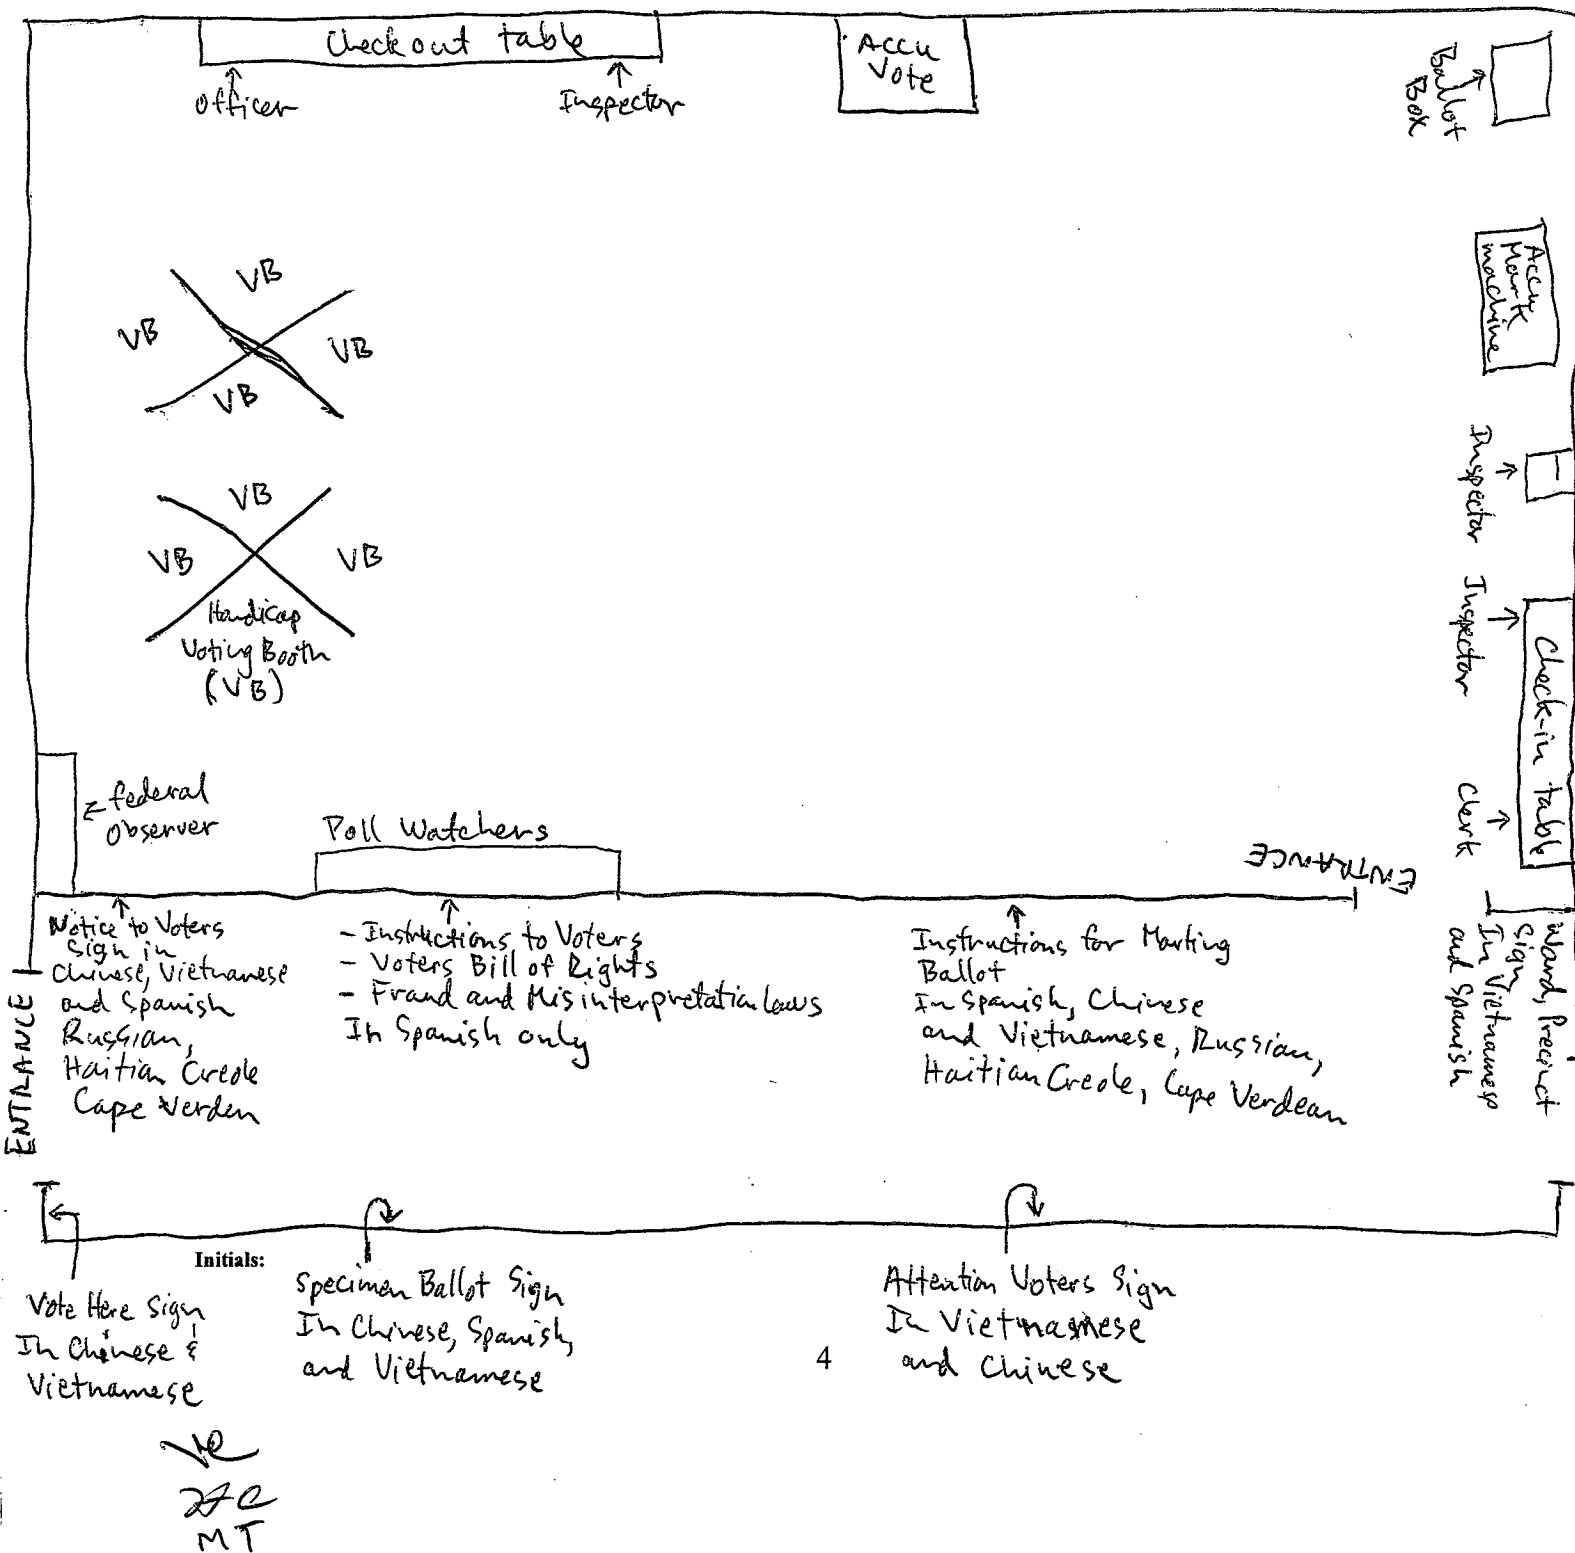 Checkout table
Officer
Inspector
Accu
Vote
Ballot
Box
VB
VB
VB
VB
Accu
Mark
machine
Inspector
VB
VB
VB
Handicap
Voting Booth
(VB)
Inspector
Check-in table
Clerk
federal
observer
Poll Watchers
ENTRANCE
Notice to Voters
Sign in
Chinese, Vietnamese
and Spanish
Russian,
Haitian Creole
Cape Verden
ENTRANCE
- Instructions to Voters
- Voters Bill of Rights
- Fraud and Misinterpretation laws
In Spanish only
Instructions for Marking
Ballot
In Spanish, Chinese
and Vietnamese, Russian,
Haitian Creole, Cape Verdean
Ward, Precinct
Sign
In Vietnamese
and Spanish
Initials:
Vote Here Sign
In Chinese &
Vietnamese
Specimen Ballot Sign
In Chinese, Spanish,
and Vietnamese
4
Attention Voters Sign
In Vietnamese
and Chinese
MT